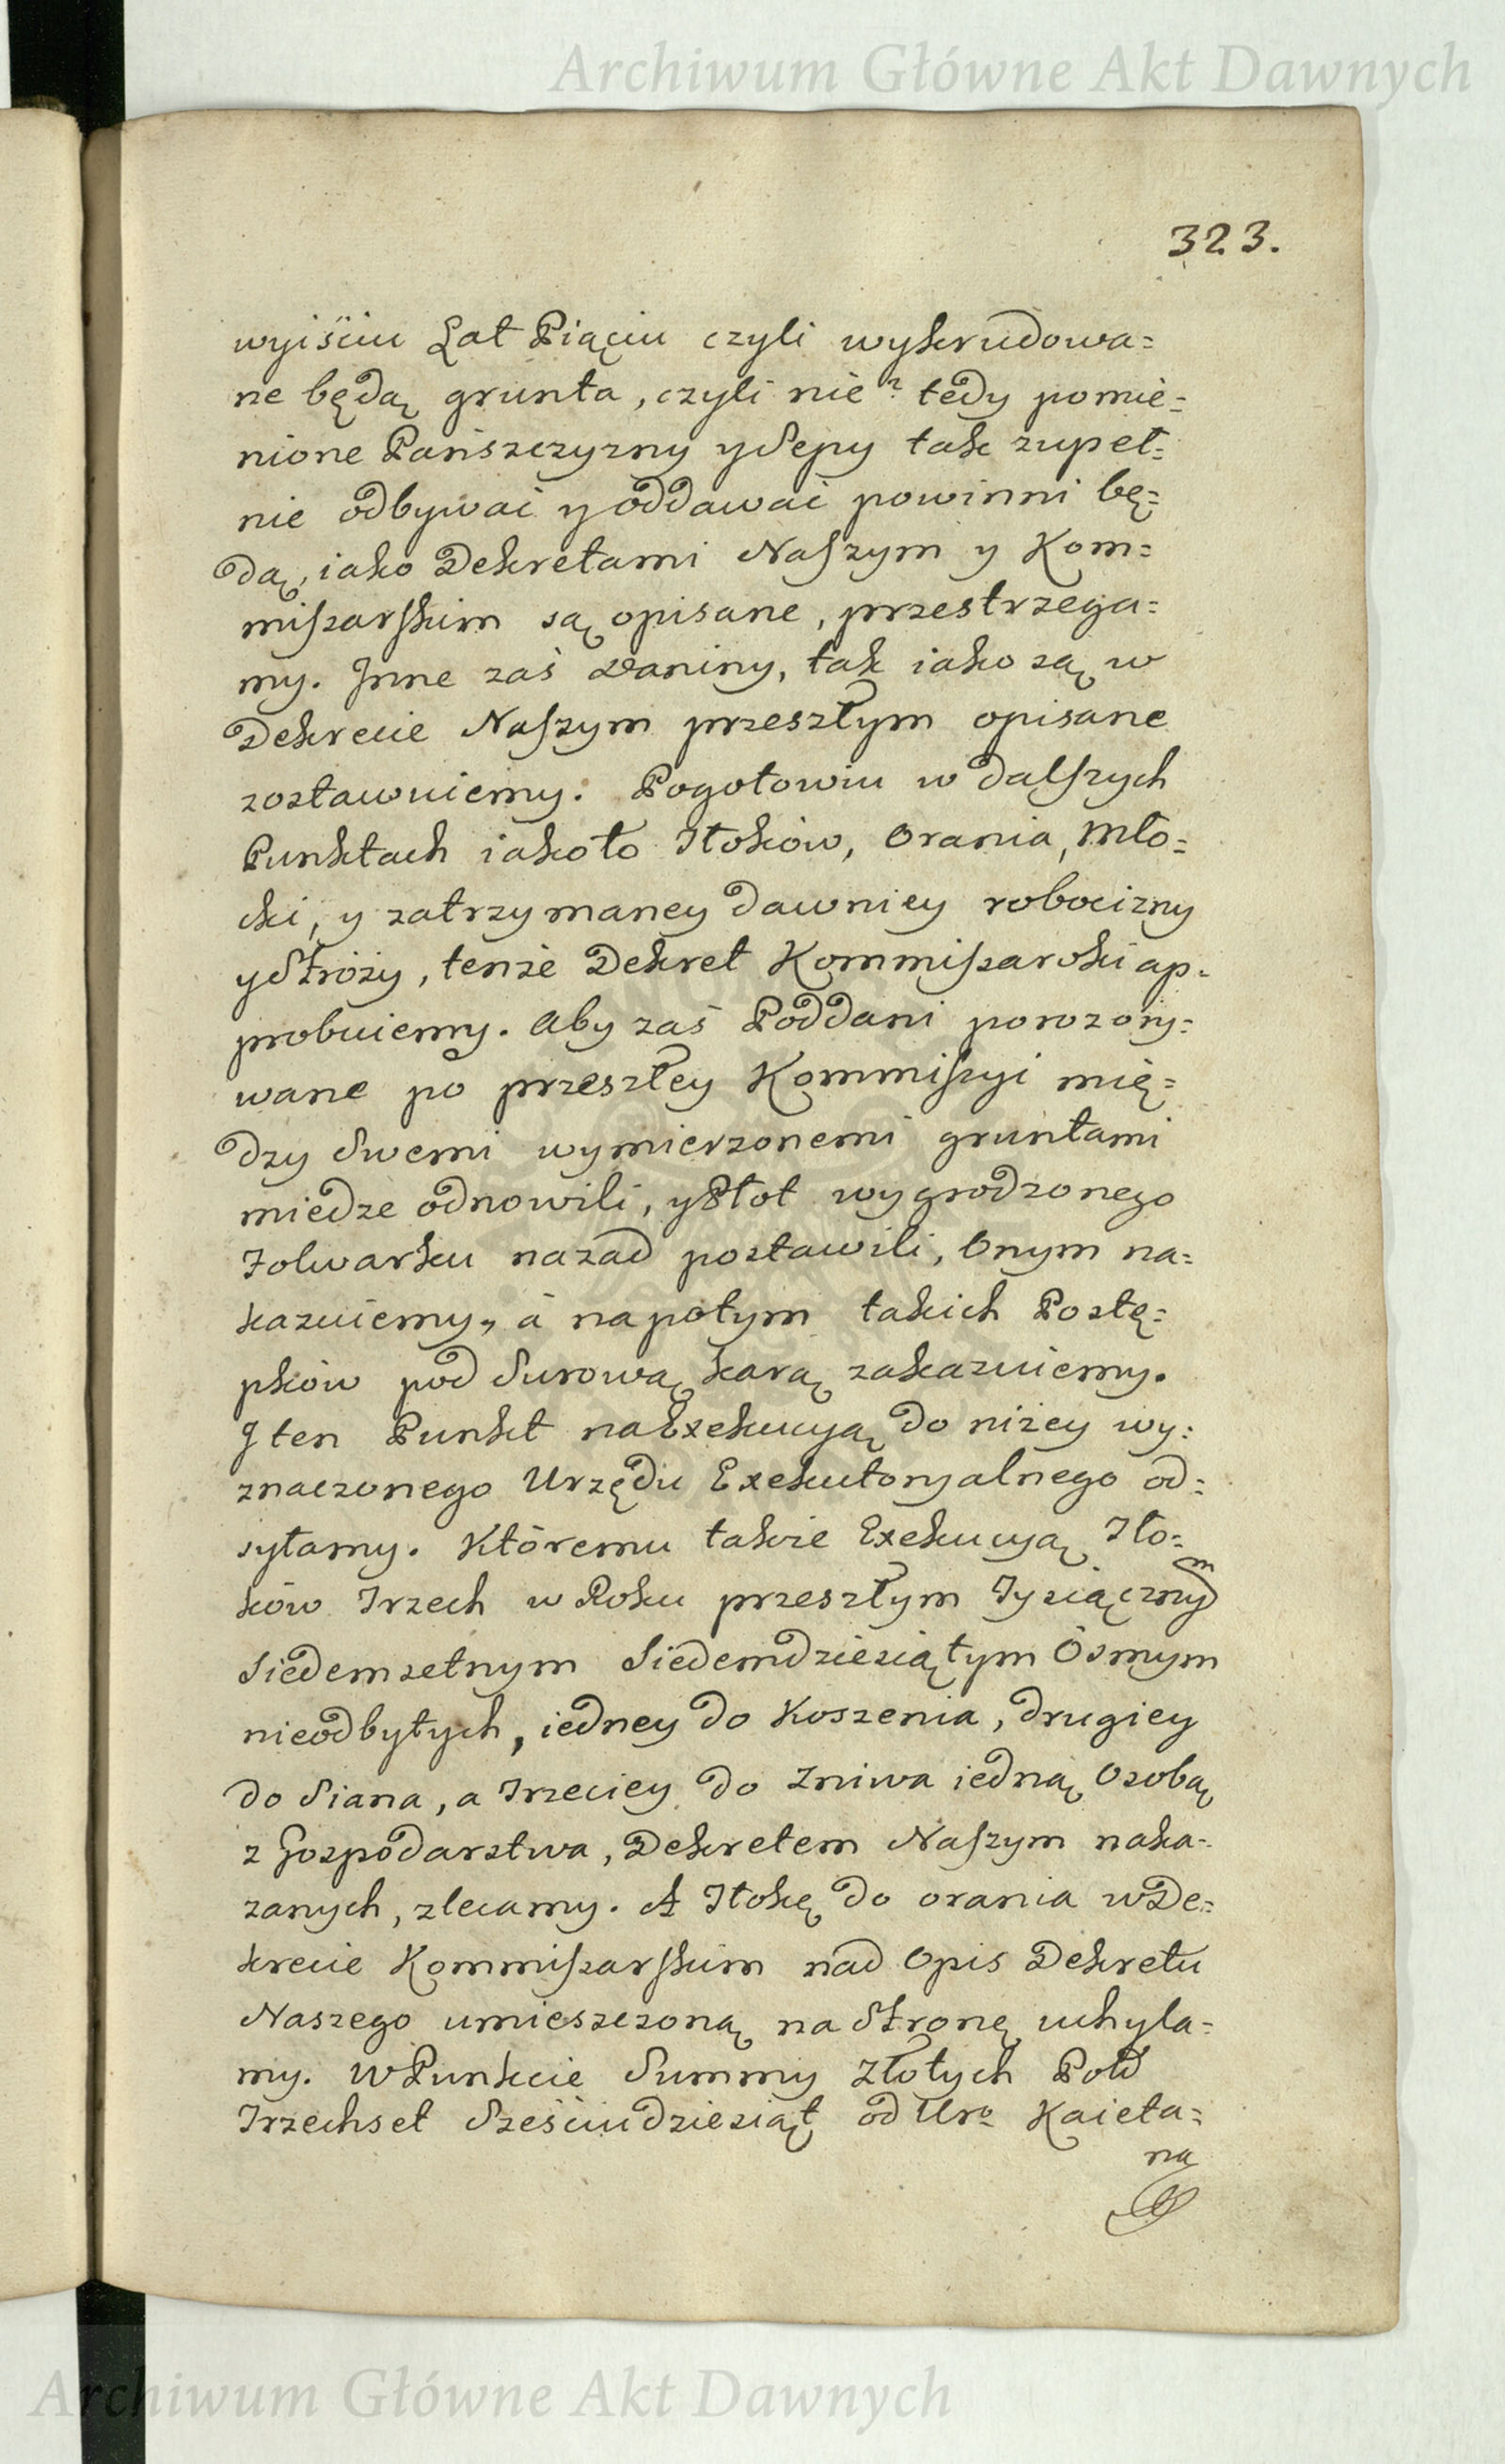 Archiwum Główne Akt Dawnych
323.
wyiściu Lat Piąciu czyli wykrudowa=
ne będą grunta, czyli nie? tedy pomie=
nione Pańszczyzny y Sepy tak zupeł=
nie odbywać y oddawać powinni bę=
dą, iako Dekretami Naszym y Kom=
missarskim są opisane, przestrzega=
my. Jnne zaś daniny, tak iako są w
Dekrecie Naszym przeszłym opisane
zostawuiemy. Pogotowiu w dalszych
Punktach iakoto Tłoków, Orania, Młó=
cki, y zatrzymaney dawniey robocizny
y Stróży, tenże Dekret Kommissarski ap=
probuiemy. Aby zaś Poddani porozory=
wane po przeszłey Kommissyi mię=
dzy Swemi wymierzonemi gruntami
miedze odnowili, y Płot wygrodzonego
Folwarku nazad postawili, Onym na=
kazuiemy, á napotym takich Postę=
pków pod Surową karą zakazuiemy.
J ten Punkt na Exekucyą do niżey wy=
znaczonego Urzędu Exekutoryalnego od=
syłamy. Któremu także Exekucyą Tło=
ków Trzech w Roku przeszłym Tysiącznym
Siedemsetnym Siedemdziesiątym Osmym
nieodbytych, iedney do Koszenia, drugiey
do Siana, a Trzeciey do Zniwa iedną Osobą
z Gospodarstwa, Dekretem Naszym naka=
zanych, zlecamy. A Tłokę do orania w De=
krecie Kommissarskim nad Opis Dekretu
Naszego umieszczoną na Stronę uchyla=
my. W Punkcie Summy Złotych Pols
Trzechset Sześćiudziesiąt od Uro Kaieta=
na
Archiwum Główne Akt Dawnych